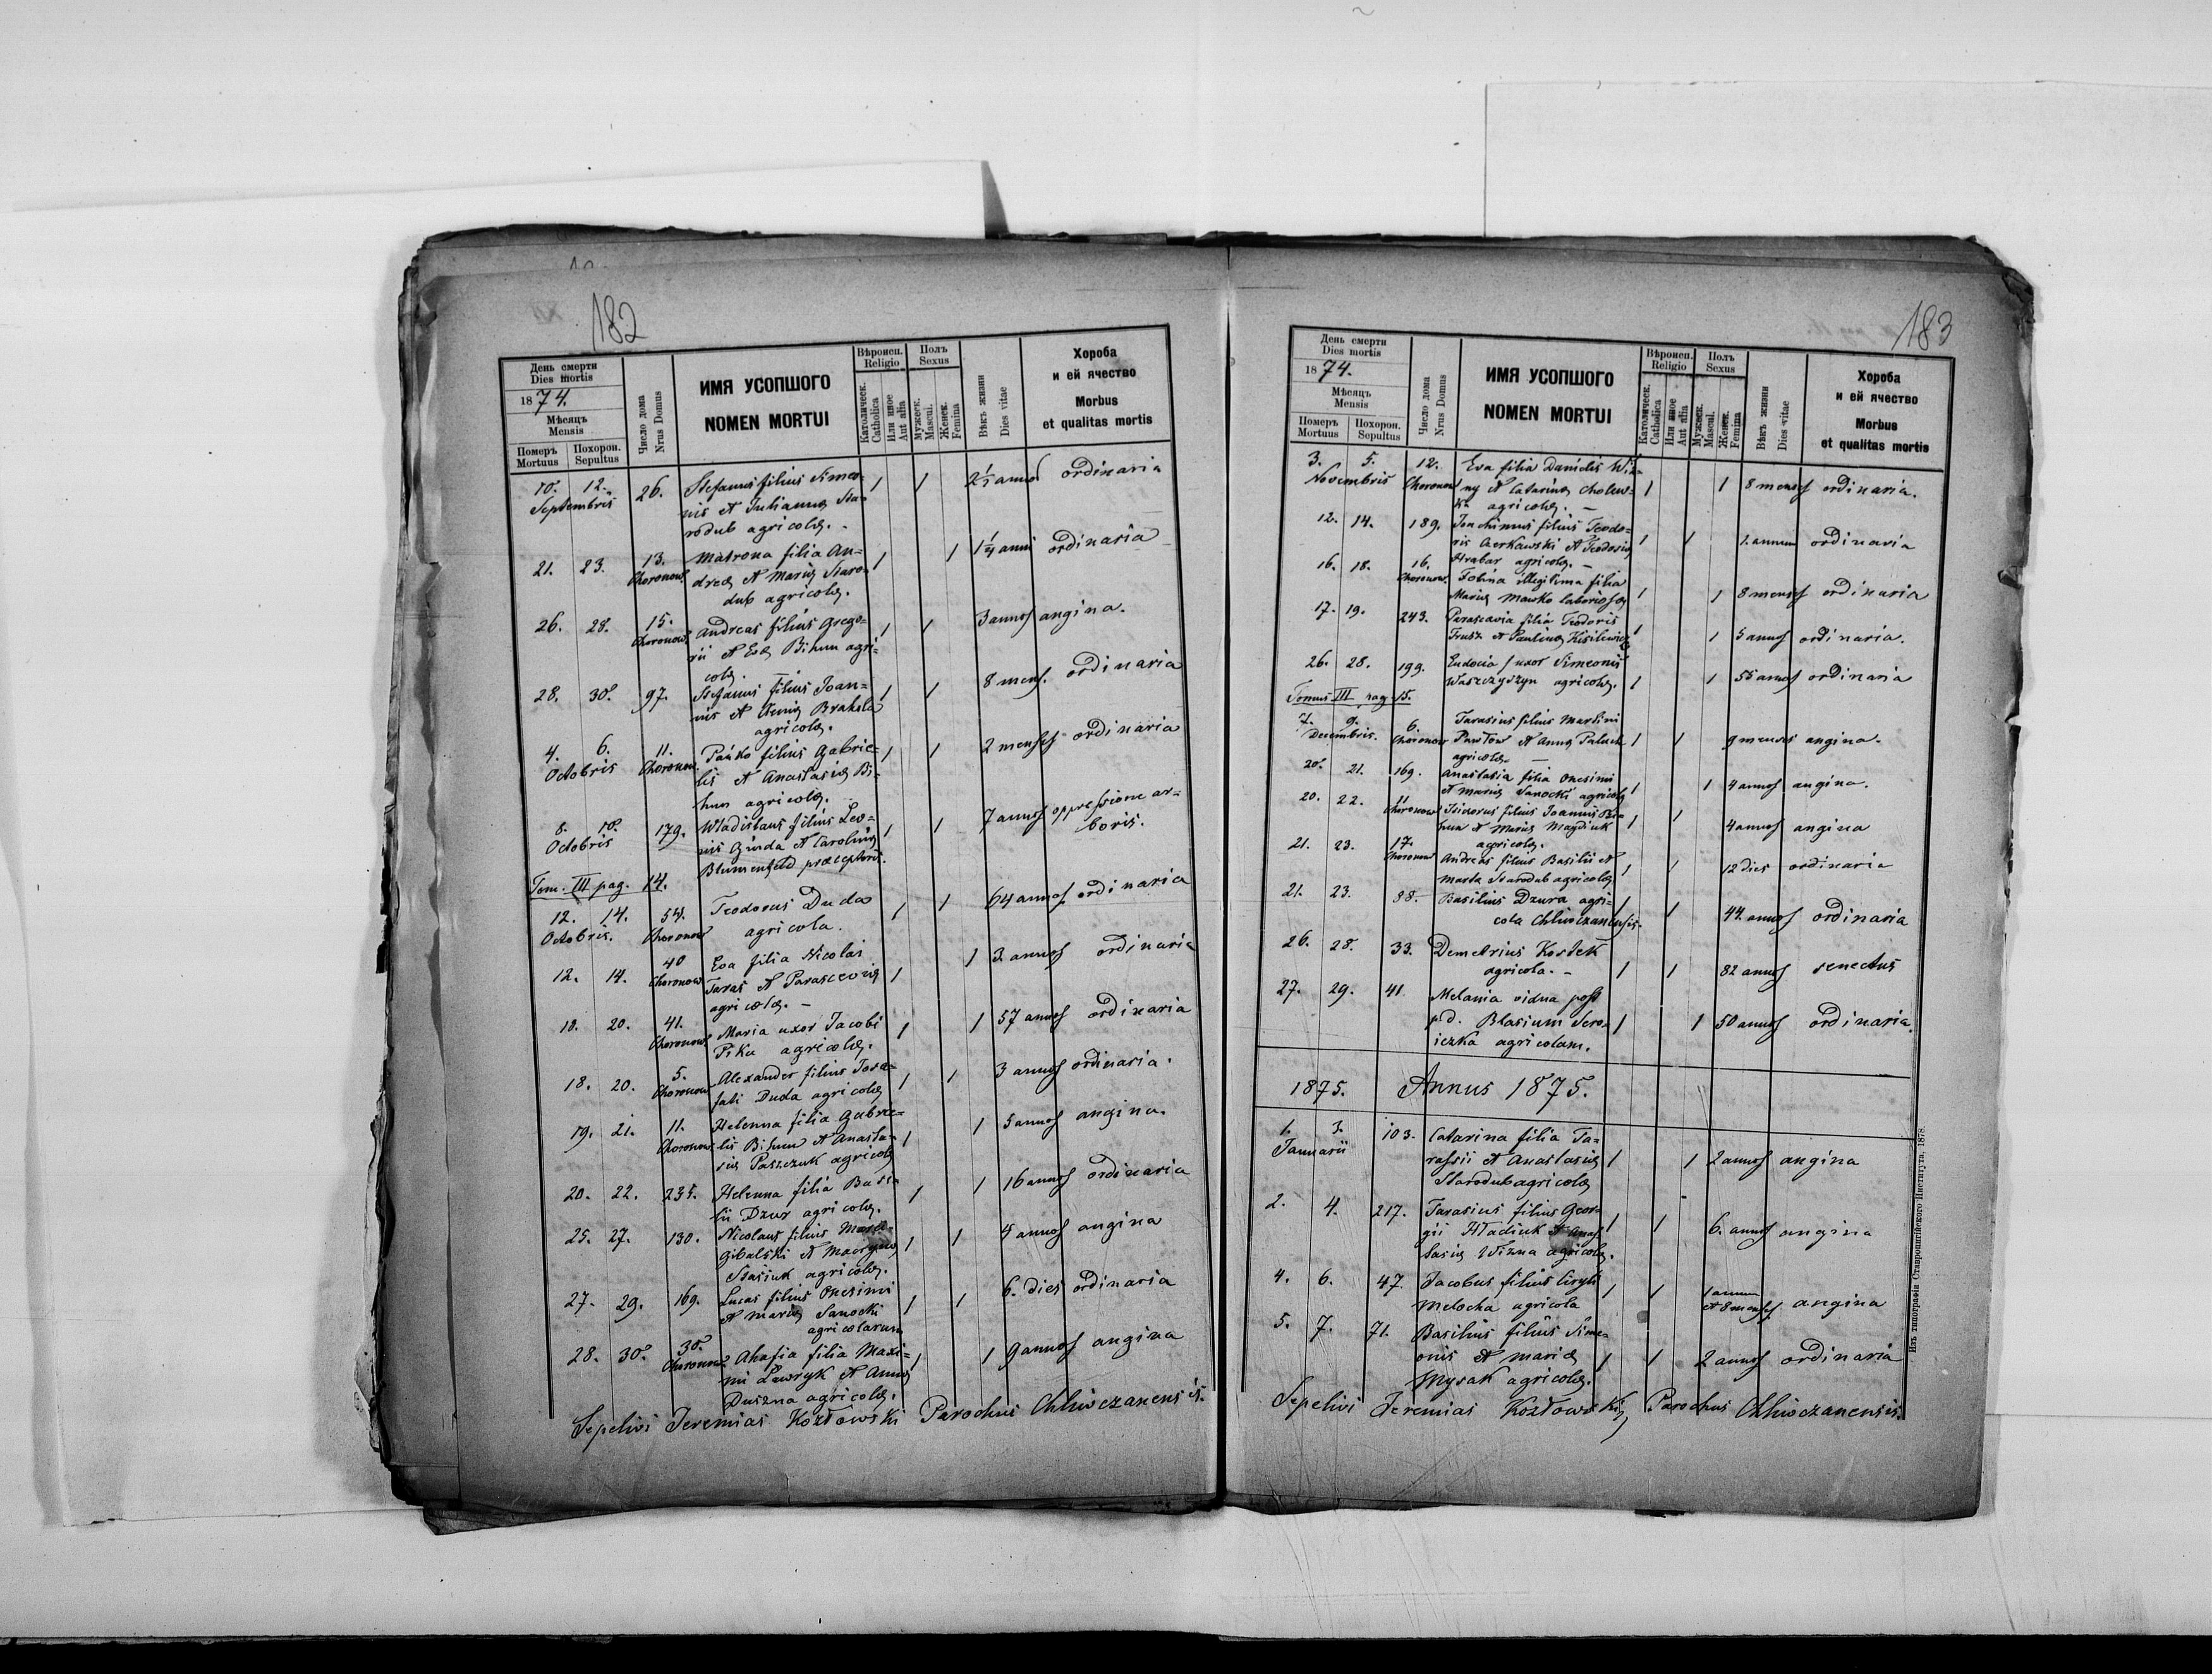 182
День смерти
Dies mortis
1874.
Мѣсяцъ
Mensis
Померъ
Mortuus
Похорон.
Sepultus
Число дома
Nrus Domus
ИМЯ УСОПШОГО
NOMEN MORTUI
Вѣроисп.
Religio
Католическ.
Catholica
Или иное
Aut alia
Полъ
Sexus
Мужеск.
Mascul.
Женск.
Femina
Вѣкъ жизни
Dies vitae
Хороба
и ей ячество
Morbus
et qualitas mortis
10. 12. 26. Stefanus filius Simeo- 1 1 ordinaria
Septembris nis et Julianna Sta-
rodub agricolæ. -
21. 23. 13. Matrona filia An- 1 1 1¼ anni ordinaria
Choronow dreæ et Mariæ Staro-
dub agricolæ.
26. 28. 15. Andreas filius Grego- 1 1 3 annos angina.
Choronow rii et Evæ Bihun agri-
colæ. -
28. 30. 97. Stefanus filius Joan- 1 1 8 mens. ordinaria
nis et Brahela
agricolæ.
4. 6. 11. Pańko filius Gabrie- 1 1 2 menses ordinaria
Octobris Choronow. lis et Anastasiæ Bi-
hun agricolæ.
8. 10. 179. Wladislaus filius Leo- 1 1 7 annos oppressione ar-
Octobris nis Girda et Carolinæ boris.
Blumenfeld præceptoris.
Tom. III pag. 14.
12. 14. 54. Teodorus Duda 1 1 64 annos ordinaria
Octobris. Choronow agricola.
12. 14. 40 Eva filia Nicolai 1 1 3 annos ordinaria
Choronow Taras et Parasceviæ
agricolæ. -
18. 20. 41. Maria uxor Jacobi 1 1 57 annos ordinaria
Choronow Pika agricolæ.
18. 20. 5. Alexander filius Josa- 1 1 3 annos ordinaria.
Choronow fati Duda agricolæ
19. 21. 11. Helenna filia Gabrie- 1 1 5 annos angina.
Choronow lis Bihun et Anasta-
siæ Paszczuk agricolæ
20. 22. 235. Helenna filia Basi- 1 1 16 annos ordinaria
lii Dzur agricolæ.
25. 27. 130. Nicolaus filius 1 1 4 annos angina
Gibalski et
Stasiuk agricolæ.
27. 29. 169. Lucas filius Onesimi 1 1 6. dies ordinaria
et Mariæ Sanocki
agricolarum
28. 30. 30. Ahafia filia Maxi- 1 1 9 annos angina
Choronow mi Ławryk et Annæ
Duszna agricolæ.
Sepelivi Jeremias Kozłowski Parochus Chliwczanensis.
183
День смерти
Dies mortis
1874.
Мѣсяцъ
Mensis
Померъ
Mortuus
Похорон.
Sepultus
Число дома
Nrus Domus
ИМЯ УСОПШОГО
NOMEN MORTUI
Вѣроисп.
Religio
Католическ.
Catholica
Или иное
Aut alia
Полъ
Sexus
Мужеск.
Mascul.
Женск.
Femina
Вѣкъ жизни
Dies vitae
Хороба
и ей ячество
Morbus
et qualitas mortis
3. 5. 12. Eva filia Danielis Wiz- 1 1 8 menses ordinaria.
Novembris Choronow ny et Catarinæ Cholew-
ka agricolæ. -
12. 14. 189. Joachimus filius Teodo- 1 1 1. annum ordinaria
ris Cerkawski et Teodosiæ
Hrabar agricolæ. -
16. 18. 16. illegitima filia 1 1 8 menses ordinaria
Choronow. Mariæ laboriosæ
17. 19. 243. Parascevia filia Teodoris 1 1 5 annos ordinaria.
Trusz et Paulinæ Kisilewicz
26. 28. 199. Eudocia uxor Simeonis 1 1 55 annos ordinaria
Waszczyszyn agricolæ.
Tomus III pag. 15.
7. 9. 6. Tarasius filius Martini 1 1 9 menses angina.
Decembris. Choronow Pawłow et Annæ Paluch
agricolæ -
20. 21. 169. Anastasia filia Onesimi 1 1 4 annos angina.
et Mariæ Sanocki agricolæ
20. 22. 11 Isidorus filius Joannis Bi- 1 1 4 annos angina
Choronow hun et Mariæ Maydiuk
agricolæ.
21. 23. 17. Andreas filius Basilii et 1 1 12 dies ordinaria
Choronow Marta Starodub agricolæ
21. 23. 88. Basilius Dzura agri- 1 1 44 annos ordinaria
cola Chliwczanensis.
26. 28. 33. Demetrius Kostek 1 1 82 annos senectus
agricola. -
27. 29. 41. Melania vidua post 1 1 50 annos ordinaria.
p. d. Blasium Sero-
iczka agricolam.
1875. Annus 1875.
1. 3. 103. Catarina filia Ta- 1 1 2 annos angina
Januarii rassii et Anastasiæ
Starodub agricolæ
2. 4. 217. Tarasius filius Geor- 1 1 6. annos angina
gii Hladiuk et Anas-
tasiæ Wizna agricolæ.
4. 6. 47. Jacobus filius Cirylli 1 1 1 annum
Melocha agricola et 8 menses angina
5. 7. 71. Basilius filius Sime- 1 1 2 annos ordinaria
onis et Mariæ
Mysak agricolæ.
Sepelivi Jeremias Kozłowski, Parochus Chliwczanensis.
Изъ типографіи Ставропигійского Института, 1878.